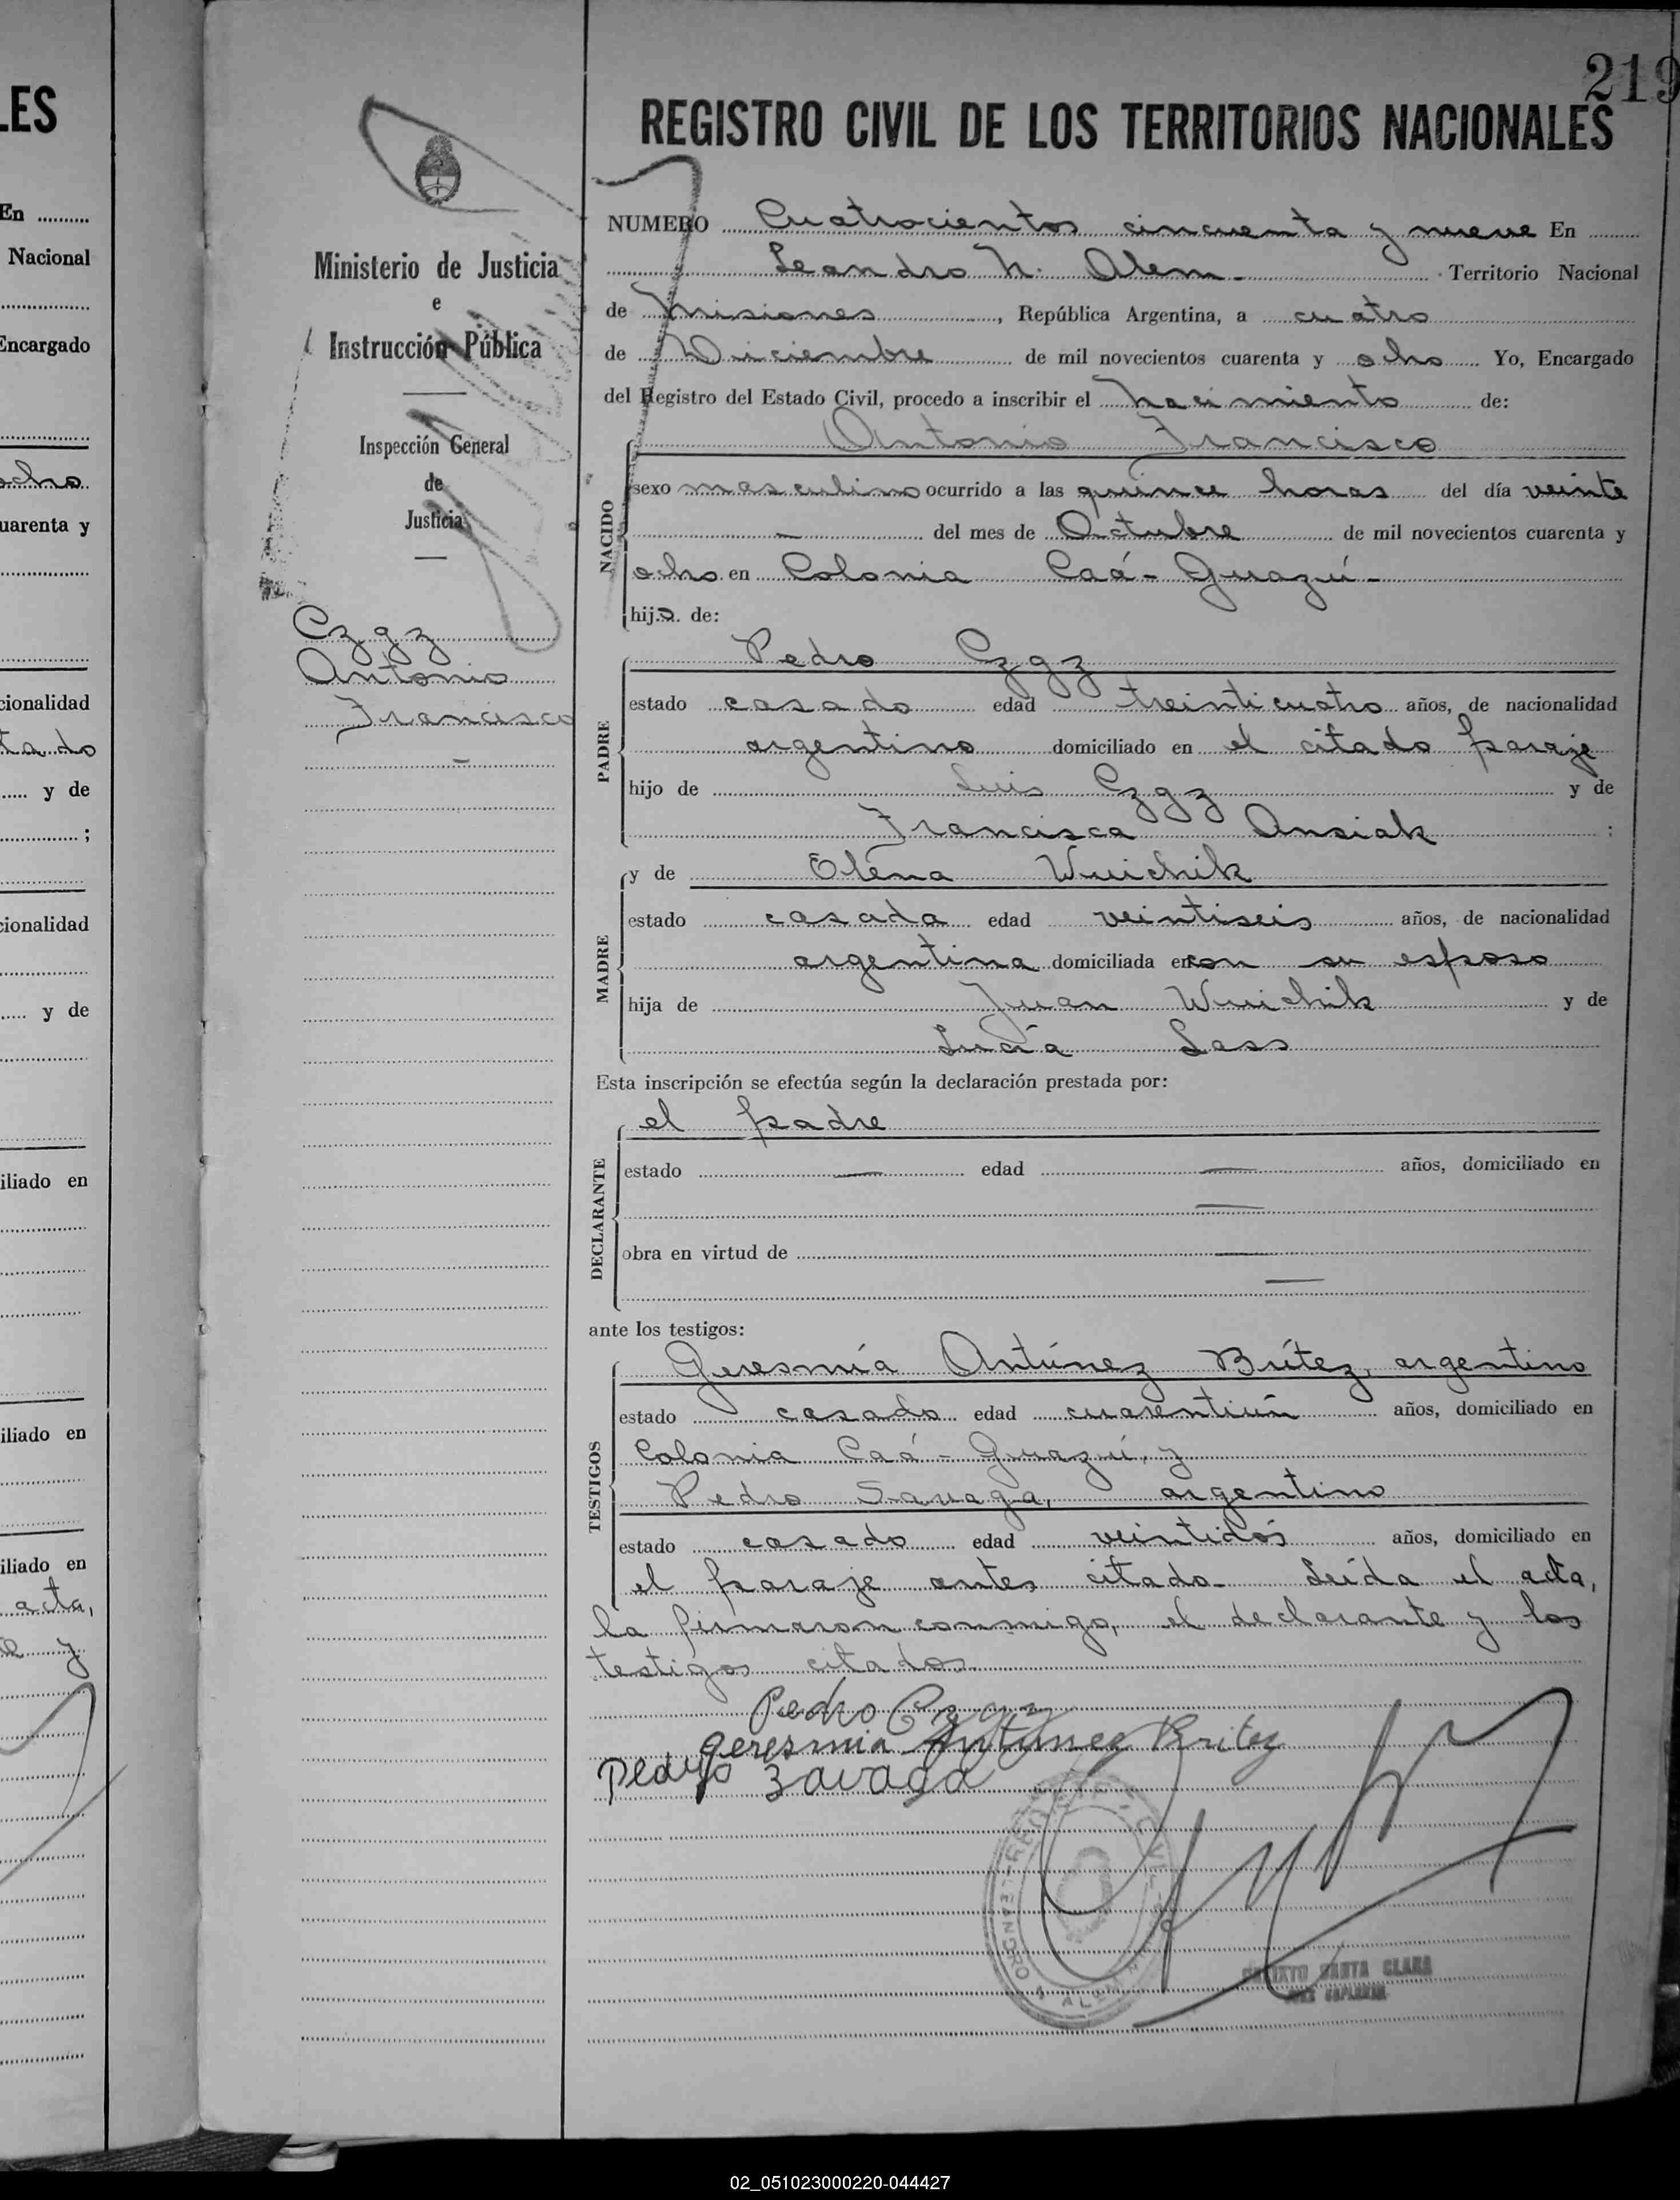 219
REGISTRO CIVIL DE LOS TERRITORIOS NACIONALES
Ministerio de Justicia
e
Instrucción Pública
Inspección General
de
Justicia
Czgz
Antonio
Francisco
NUMERO Cuatrocientos cincuenta y nueve En
Leandro N. Alem - Territorio Nacional
de Misiones, República Argentina, a cuatro
de Diciembre de mil novecientos cuarenta y ocho Yo, Encargado
del Registro del Estado Civil, procedo a inscribir el nacimiento de:
NACIDO
Antonio Francisco
sexo masculino ocurrido a las quince horas del día veinte
— del mes de Octubre de mil novecientos cuarenta y
ocho en Colonia Caá-Guazú-
hijo de:
PADRE
Pedro Czgz
estado casado edad treinticuatro años, de nacionalidad
argentino domiciliado en el citado paraje
hijo de Luis Czgz y de
Francisca Ansiak ;
MADRE
y de Elena Wuichik
estado casada edad veintiseis años, de nacionalidad
argentina domiciliada en con su esposo
hija de Juan Wuichik y de
Lucía Lass
Esta inscripción se efectúa según la declaración prestada por:
DECLARANTE
el padre
estado — edad — años, domiciliado en
—
obra en virtud de —
—
ante los testigos:
TESTIGOS
Geresmía Antúnez Brítez, argentino
estado casado edad cuarentiún años, domiciliado en
Colonia Caá-Guazú, y
Pedro Savaga, argentino
estado casado edad veintidós años, domiciliado en
el paraje antes citado- Leída el acta,
la firmaron conmigo, el declarante y los
testigos citados.
Pedro Czgz
Geresmia Antunez Britez
Pedro Zavaga
REGISTRO CIVIL
LEANDRO N. ALEM
SANTA CLARA
LES
En
Nacional
Encargado
ocho
cuarenta y
cionalidad
tado
y de
;
cionalidad
y de
iliado en
iliado en
iliado en
acta,
y
02_051023000220-044427